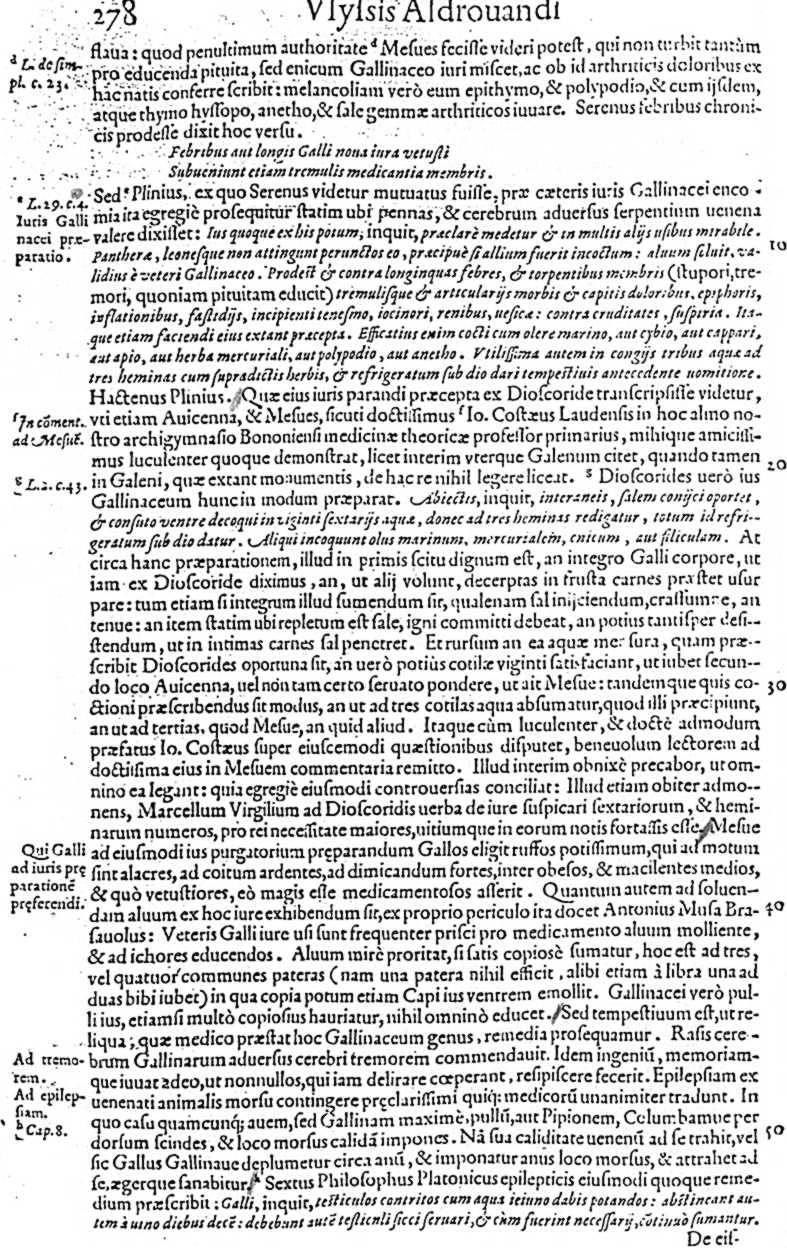 278 Vlyssis Aldrouandi
flaua: quod penultimum authoritate ᵈ Mesues fecisse videri potest, qui non turbit tantùm
ᵈ L. de sim-
pl. c. 23.
pro educenda pituita, sed enicum Gallinaceo iuri miscet, ac ob id arthriticis doloribus ex
hac natis conferre scribit: melancoliam verò eum epithymo, & polypodio, & cum ijsdem,
atque thymo hyssopo, anetho, & sale gemmæ arthriticos iuuare. Serenus febribus chroni-
cis prodesse dixit hoc versu.
Febribus aut longis Galli noua iura vetusti
Subueniunt etiam tremulis medicantia membris.
ᵉ L. 29. c. 4.
Iuris Galli
nacei præ-
paratio.
Sed ᵉ Plinius, ex quo Serenus videtur mutuatus fuisse, præ cæteris iuris Gallinacei enco-
mia ita egregiè prosequitur statim ubi pennas, & cerebrum aduersus serpentium uenena
valere dixisset: Ius quoque ex his potum, inquit, præclarè medetur & in multis alijs usibus mirabile.
Pantheræ, leonesque non attingunt perunctos eo, præcipuè si allium fuerit incoctum: aluum soluit, va- 10
lidius è veteri Gallinaceo. Prodest & contra longinquas febres, & torpentibus membris (stupori, tre-
mori, quoniam pituitam educit) tremulisque & articularijs morbis & capitis doloribus, epiphoris,
inflationibus, fastidijs, incipienti tenesmo, iocinori, renibus, uesicæ: contra cruditates, suspiria. Ita-
que etiam faciendi eius extant præcepta. Efficatius enim cocti cum olere marino, aut cybio, aut cappari,
aut apio, aut herba mercuriali, aut polypodio, aut anetho. Vtilissima autem in congijs tribus aquæ ad
tres heminas cum supradictis herbis, & refrigeratum sub dio dari tempestiuis antecedente uomitione.
Hactenus Plinius. Quæ eius iuris parandi præcepta ex Dioscoride transcripsisse videtur,
ᶠ In cōment.
ad Mesue.
vti etiam Auicenna, & Mesues, sicuti doctissimus ᶠ Io. Costæus Laudensis in hoc almo no-
stro archigymnasio Bononiensi medicinæ theoricæ professor primarius, mihique amicissi-
mus luculenter quoque demonstrat, licet interim vterque Galenum citet, quando tamen 20
ᵍ L. 2. c. 43.
in Galeni, quæ extant monumentis, de hac re nihil legere liceat. ᵍ Dioscorides uerò ius
Gallinaceum hunc in modum præparat. Abiectis, inquit, interaneis, salem conijci oportet,
& consuto ventre decoqui in viginti sextarijs aquæ, donec ad tres heminas redigatur, totum id refri-
geratum sub dio datur. Aliqui incoquunt olus marinum, mercurialem, cnicum, aut filiculam. At
circa hanc præparationem, illud in primis scitu dignum est, an integro Galli corpore, ut
iam ex Dioscoride diximus, an, ut alij volunt, decerptas in frusta carnes præstet usur
pare: tum etiam si integrum illud sumendum sit, qualenam sal inijciendum, crassumne, an
tenue: an item statim ubi repletum est sale, igni committi debeat, an potius tantisper desi-
stendum, ut in intimas carnes sal penetret. Et rursum an ea aquæ mensura, quam præ-
scribit Dioscorides oportuna sit, an uerò potiùs cotilæ viginti satisfaciant, ut iubet secun-
do loco Auicenna, uel non tam certo seruato pondere, ut ait Mesue: tandemque quis co- 30
ctioni præscribendus sit modus, an ut ad tres cotilas aqua absumatur, quod illi præcipiunt,
an ut ad tertias, quod Mesue, an quid aliud. Itaque cùm luculenter, & doctè admodum
præfatus Io. Costæus super eiuscemodi quæstionibus disputet, beneuolum lectorem ad
doctissima eius in Mesuem commentaria remitto. Illud interim obnixè precabor, ut om-
nino ea legant: quia egregiè eiusmodi controuersias conciliat: Illud etiam obiter admo-
nens, Marcellum Virgilium ad Dioscoridis uerba de iure suspicari sextariorum, & hemi-
narum numeros, pro rei necessitate maiores, uitiumque in eorum notis fortassis esse. Mesue
Qui Galli
ad iuris prę
parationē
pręferendi.
ad eiusmodi ius purgatorium pręparandum Gallos eligit ruffos potissimum, qui ad motum
sint alacres, ad coitum ardentes, ad dimicandum fortes, inter obesos, & macilentes medios,
& quò vetustiores, eò magis esse medicamentosos asserit. Quantum autem ad soluen-
dam aluum ex hoc iure exhibendum sit, ex proprio periculo ita docet Antonius Musa Bra- 40
sauolus: Veteris Galli iure usi sunt frequenter prisci pro medicamento aluum molliente,
& ad ichores educendos. Aluum mirè proritat, si satis copiosè sumatur, hoc est ad tres,
vel quatuor communes pateras (nam una patera nihil efficit, alibi etiam à libra una ad
duas bibi iubet) in qua copia potum etiam Capi ius ventrem emollit. Gallinacei verò pul-
li ius, etiamsi multò copiosius hauriatur, nihil omninò educet. Sed tempestiuum est, ut re-
liqua, quæ medico præstat hoc Gallinaceum genus, remedia prosequamur. Rasis cere-
Ad tremo-
rem.
brum Gallinarum aduersus cerebri tremorem commendauit. Idem ingeniū, memoriam-
que iuuat adeo, ut nonnullos, qui iam delirare cœperant, resipiscere fecerit. Epilepsiam ex
Ad epilep-
siam.
ʰ Cap. 8.
uenenati animalis morsu contingere pręclarissimi quiq; medicorū unanimiter tradunt. In
quo casu quamcunq; auem, sed Gallinam maximè, pullū, aut Pipionem, Columbamue per
dorsum scindes, & loco morsus calidā impones. Nā sua caliditate uenenū ad se trahit, vel 50
sic Gallus Gallinaue deplumetur circa anū, & imponatur anus loco morsus, & attrahet ad
se, ægerque sanabitur. ʰ Sextus Philosophus Platonicus epilepticis eiusmodi quoque reme-
dium præscribit: Galli, inquit, testiculos contritos cum aqua ieiuno dabis potandos: abstineant au-
tem à uino diebus decē: debebunt autē testiculi sicci seruari, & cùm fuerint necessarij, cōtinuò sumantur.
De eis-